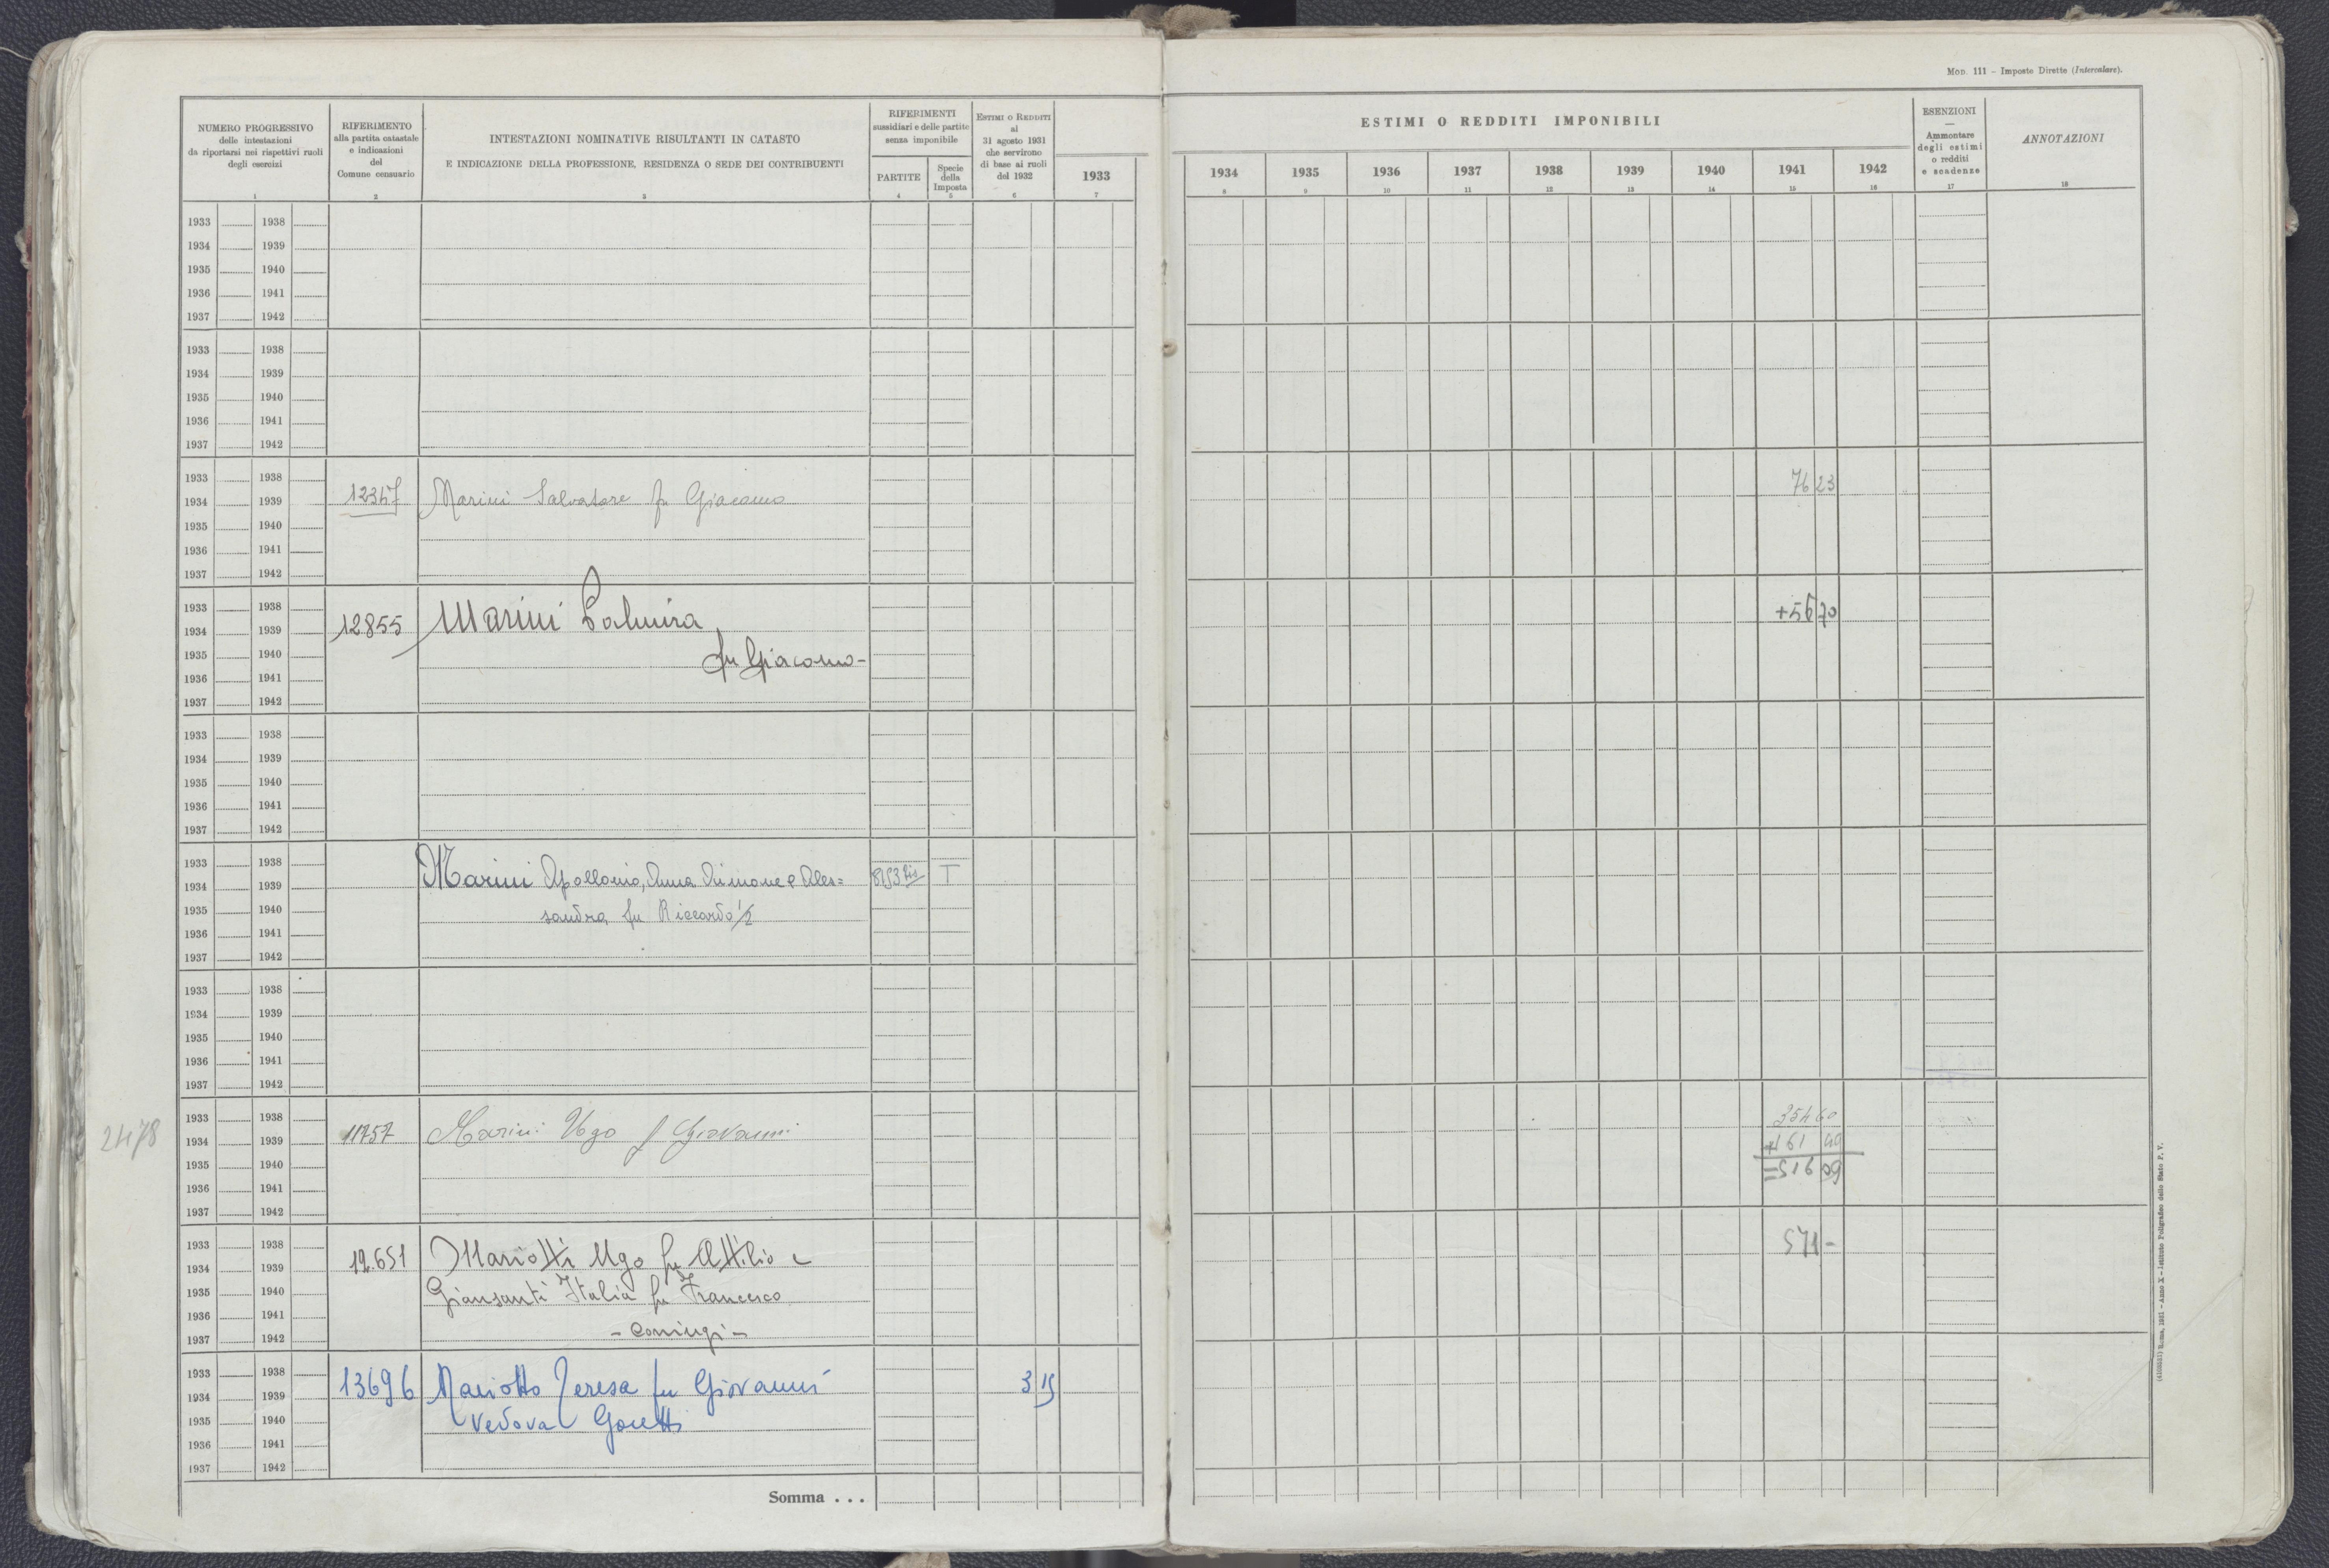 MOD. 111 – Imposte Dirette (Intercalare).
NUMERO PROGRESSIVO
delle intestazioni
da riportarsi nei rispettivi ruoli
degli esercizi
1
RIFERIMENTO
alla partita catastale
e indicazioni
del
Comune censuario
2
INTESTAZIONI NOMINATIVE RISULTANTI IN CATASTO
E INDICAZIONE DELLA PROFESSIONE, RESIDENZA O SEDE DEI CONTRIBUENTI
3
RIFERIMENTI
sussidiari e delle partite
senza imponibile
PARTITE
4
Specie
della
Imposta
5
ESTIMI O REDDITI
al
31 agosto 1931
che servirono
di base ai ruoli
del 1932
6
1933
7
ESTIMI O REDDITI IMPONIBILI
1934 1935 1936 1937 1938 1939 1940 1941 1942
8 9 10 11 12 13 14 15 16
ESENZIONI
—
Ammontare
degli estimi
o redditi
e scadenze
17
ANNOTAZIONI
18
1933 1938
1934 1939
1935 1940
1936 1941
1937 1942
1933 1938
1934 1939
1935 1940
1936 1941
1937 1942
1933 1938 76 23
1934 1939 Marini Salvatore fu Giacomo
1935 1940
1936 1941
1937 1942
1933 1938 +56 70
1934 1939 12855 Marini Palmira
1935 1940 fu Giacomo-
1936 1941
1937 1942
1933 1938
1934 1939
1935 1940
1936 1941
1937 1942
1933 1938
1934 1939 Marini Apollonio, Anna e Ales= I
1935 1940 sandra fu Riccardo 1/2
1936 1941
1937 1942
1933 1938
1934 1939
1935 1940
1936 1941
1937 1942
1933 1938
2478 1934 1939 11757 Marini Ugo f Giovanni
1935 1940 =516 09
1936 1941
1937 1942
1933 1938 571 -
1934 1939 12.651 Mariotti Ugo fu Attilio e
1935 1940 Giansanti Italia fu Francesco
1936 1941
1937 1942 - coniugi -
1933 1938
1934 1939 13696 Mariotto Teresa fu Giovanni 3 15
1935 1940 vedova Goretti
1936 1941
1937 1942
Somma . . .
Roma, 1931 – Anno X – Istituto Poligrafico dello Stato P. V.